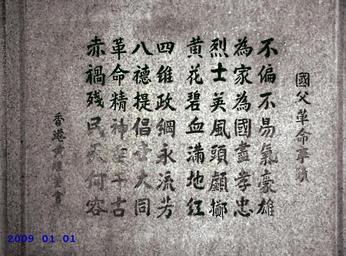 國父革命亭頌
不偏不易氣豪雄
為家為國盡孝忠
烈士英風頭顱擲
黃花碧血滿地紅
四維政綱永流芳
八德提倡大同
革命精神千古
赤禍残民天何容
香港書
2009 01 01